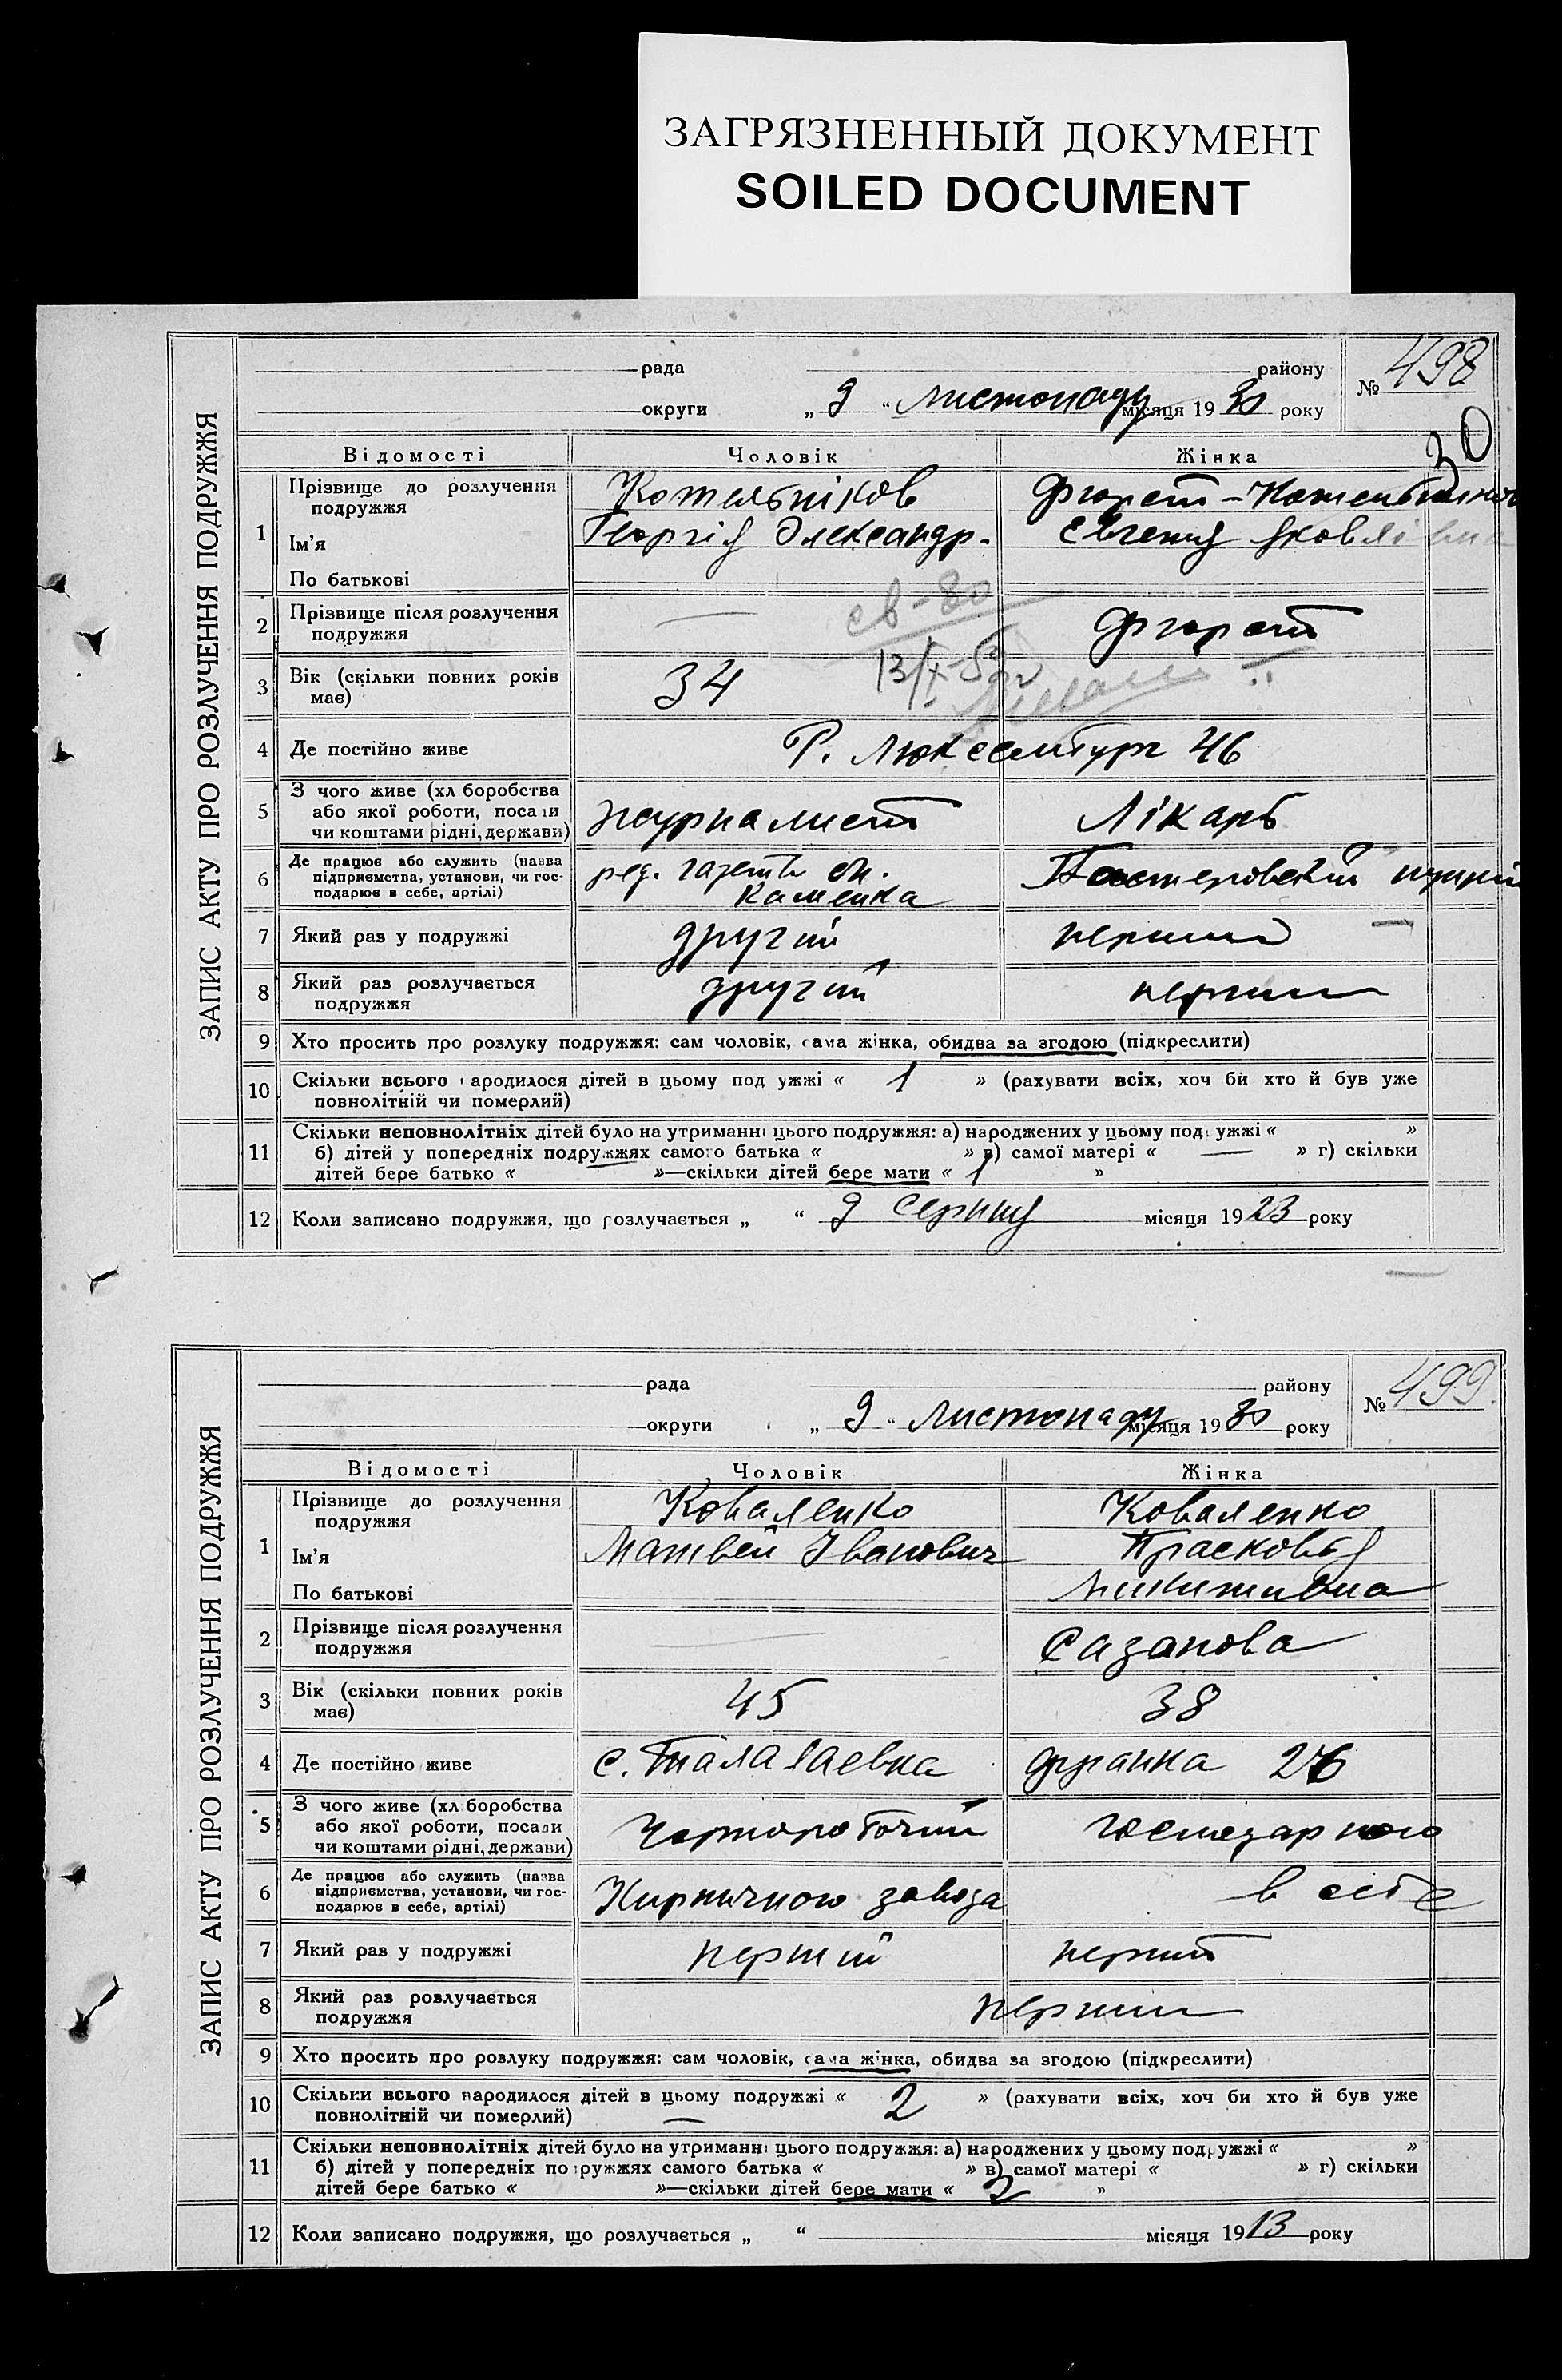 ЗАГРЯЗНЕННЫЙ ДОКУМЕНТ
SOILED DOCUMENT
ЗАПИС АКТУ ПРО РОЗЛУЧЕННЯ ПОДРУЖЖЯ
рада району
№ 498
округи „ 9 “ Листопаду місяця 19 30 року
30
Відомості Чоловік Жінка
1 Прізвище до розлучення подружжя
Котельніков
Ім'я
Георгій Олександр.
Евгения Яковлівна
По батькові
2 Прізвище після розлучення подружжя
—
св-во
3 Вік (скільки повних років має)
34
4 Де постійно живе
Р. Люксембург 46
5 З чого живе (хл боробства або якої роботи, посади чи коштами рідні, держави)
журналист
Лікарь
6 Де працює або служить (назва підприємства, установи, чи господарює в себе, артілі)
ред. газети ст. Каменка
Пастеровский
7 Який раз у подружжі
другий
перший
8 Який раз розлучається подружжя
другий
перший
9 Хто просить про розлуку подружжя: сам чоловік, сама жінка, обидва за згодою (підкреслити)
10 Скільки всього народилося дітей в цьому подружжі « 1 » (рахувати всіх, хоч би хто й був уже
повнолітній чи померлий)
11 Скільки неповнолітніх дітей було на утриманні цього подружжя: а) народжених у цьому подружжі « »
б) дітей у попередніх подружжях самого батька « » в) самої матері « — » г) скільки
дітей бере батько « »—скільки дітей бере мати « 1 »
12 Коли записано подружжя, що розлучається „ “ 9 Серпня місяця 1923 року
ЗАПИС АКТУ ПРО РОЗЛУЧЕННЯ ПОДРУЖЖЯ
рада району
№ 499.
округи „ 9 “ Листопаду місяця 19 30 року
Відомості Чоловік Жінка
1 Прізвище до розлучення подружжя
Коваленко
Коваленко
Ім'я
Матвей Іванович
Прасковья
По батькові
Никитивна
2 Прізвище після розлучення подружжя
—
Сазанова
3 Вік (скільки повних років має)
45
38
4 Де постійно живе
с.
26
5 З чого живе (хл боробства або якої роботи, посади чи коштами рідні, держави)
Чорноробочий
6 Де працює або служить (назва підприємства, установи, чи господарює в себе, артілі)
Кирпичного завода
в себе
7 Який раз у подружжі
перший
перший
8 Який раз розлучається подружжя
перший
9 Хто просить про розлуку подружжя: сам чоловік, сама жінка, обидва за згодою (підкреслити)
10 Скільки всього народилося дітей в цьому подружжі « 2 » (рахувати всіх, хоч би хто й був уже
повнолітній чи померлий)
11 Скільки неповнолітніх дітей було на утриманні цього подружжя: а) народжених у цьому подружжі « »
б) дітей у попередніх подружжях самого батька « » в) самої матері « » г) скільки
дітей бере батько « »—скільки дітей бере мати « 2 »
12 Коли записано подружжя, що розлучається „ “ місяця 1913 року